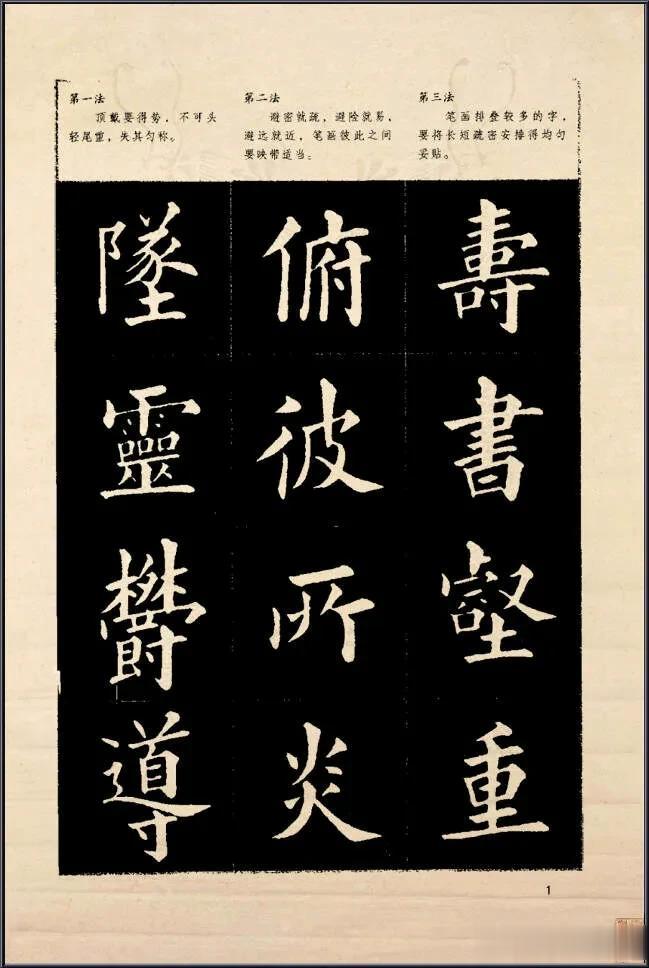 第一法
顶戴要得势，不可头
轻尾重，失其匀称。
第二法
避密就疏，避险就易，
避远就近，笔画彼此之间
要映带适当。
第三法
笔画排叠较多的字，
要将长短疏密安排得均匀
妥贴。
墜靈鬱導
俯彼所炎
壽書壑重
1